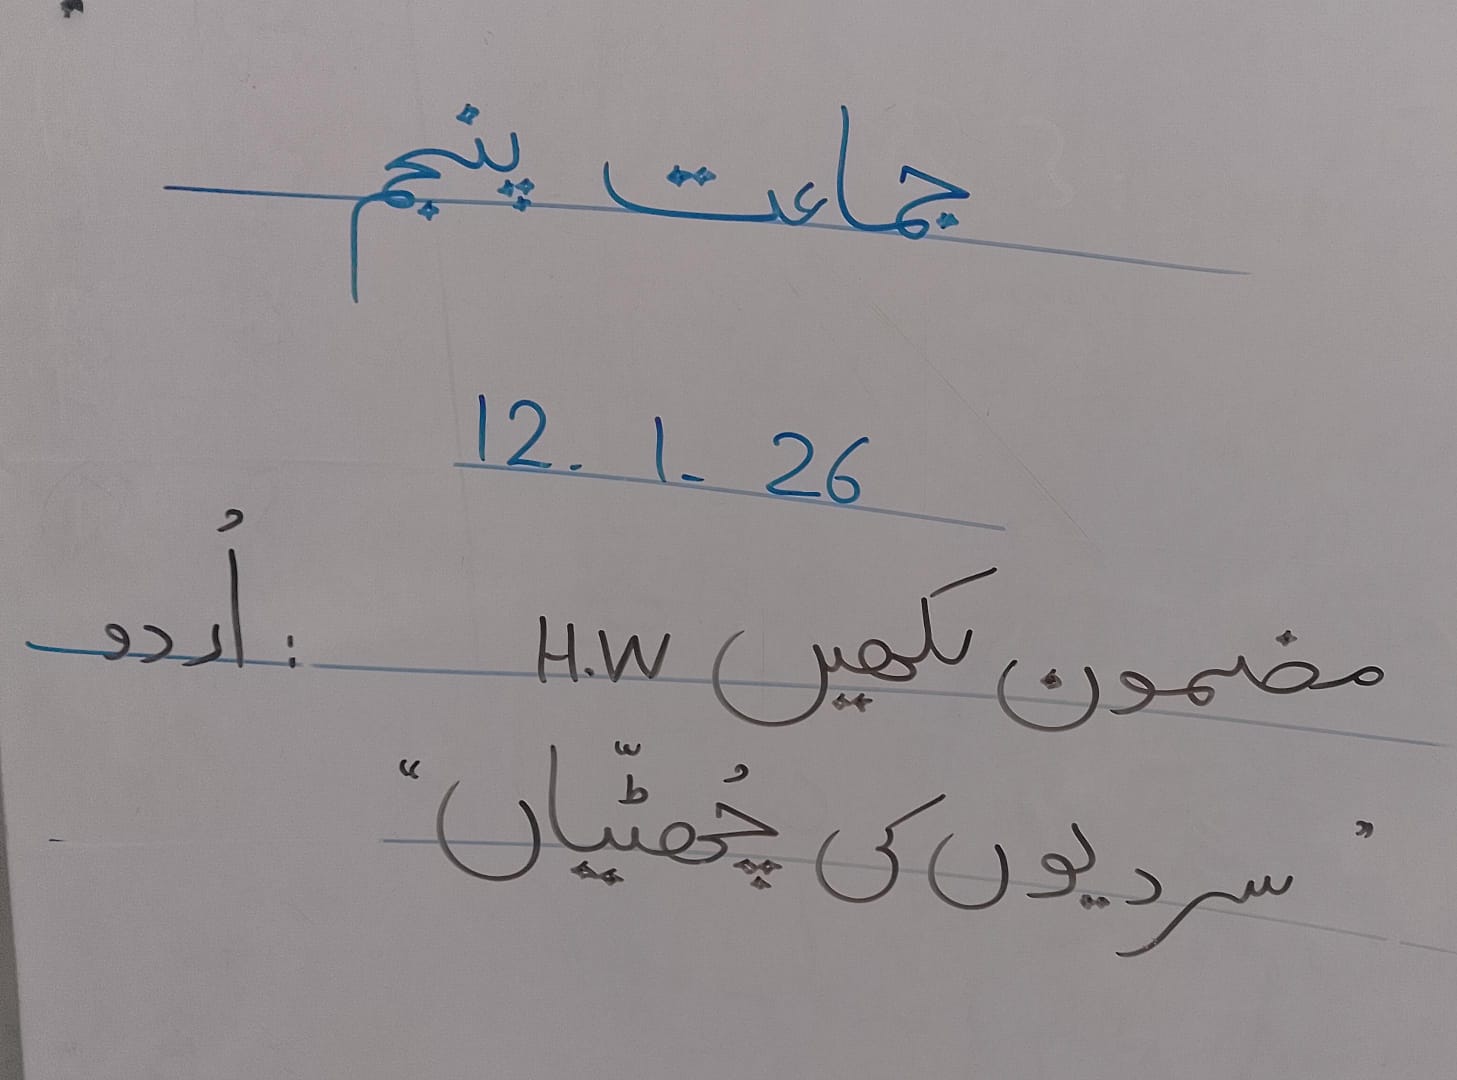 جماعت پنجم
12. 1- 26
اُردو :
مضمون لکھیں H.W
”سردیوں کی چُھٹّیاں“